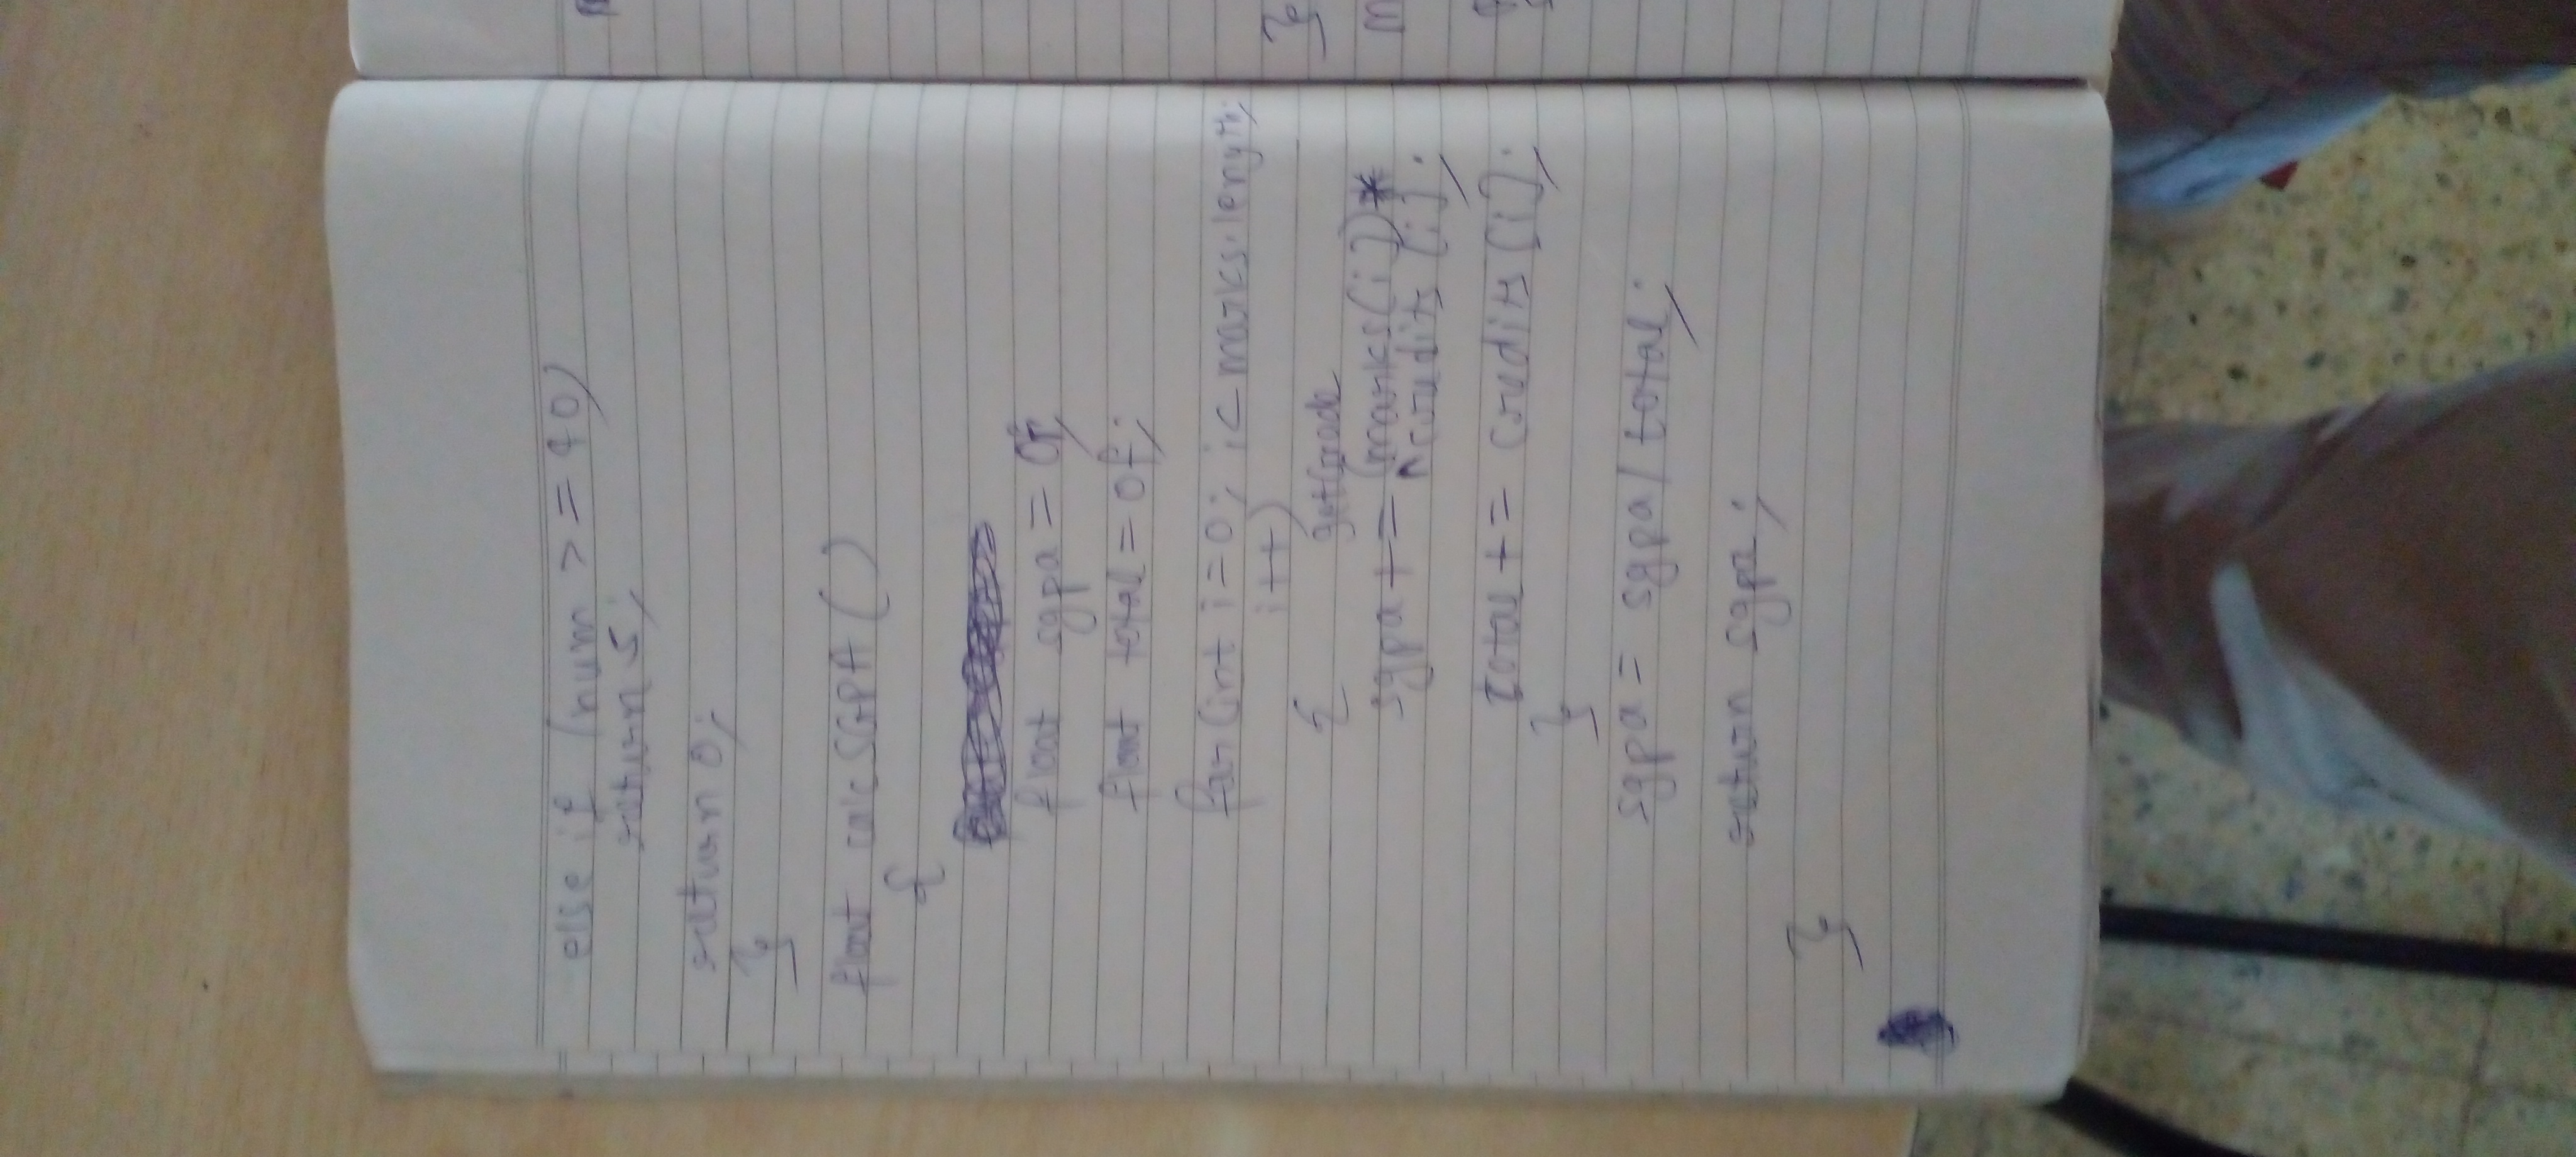 else if (num >= 40)
return 5;
return 0;
}
float calcSGPA ()
{
float sgpa = 0f;
float total = 0f;
for (int i = 0; i < marks.length;
i++)
{
getGrade
sgpa += (marks[i]) *
credits [i];
total += credits [i];
}
sgpa = sgpa / total;
return sgpa;
}
}
m